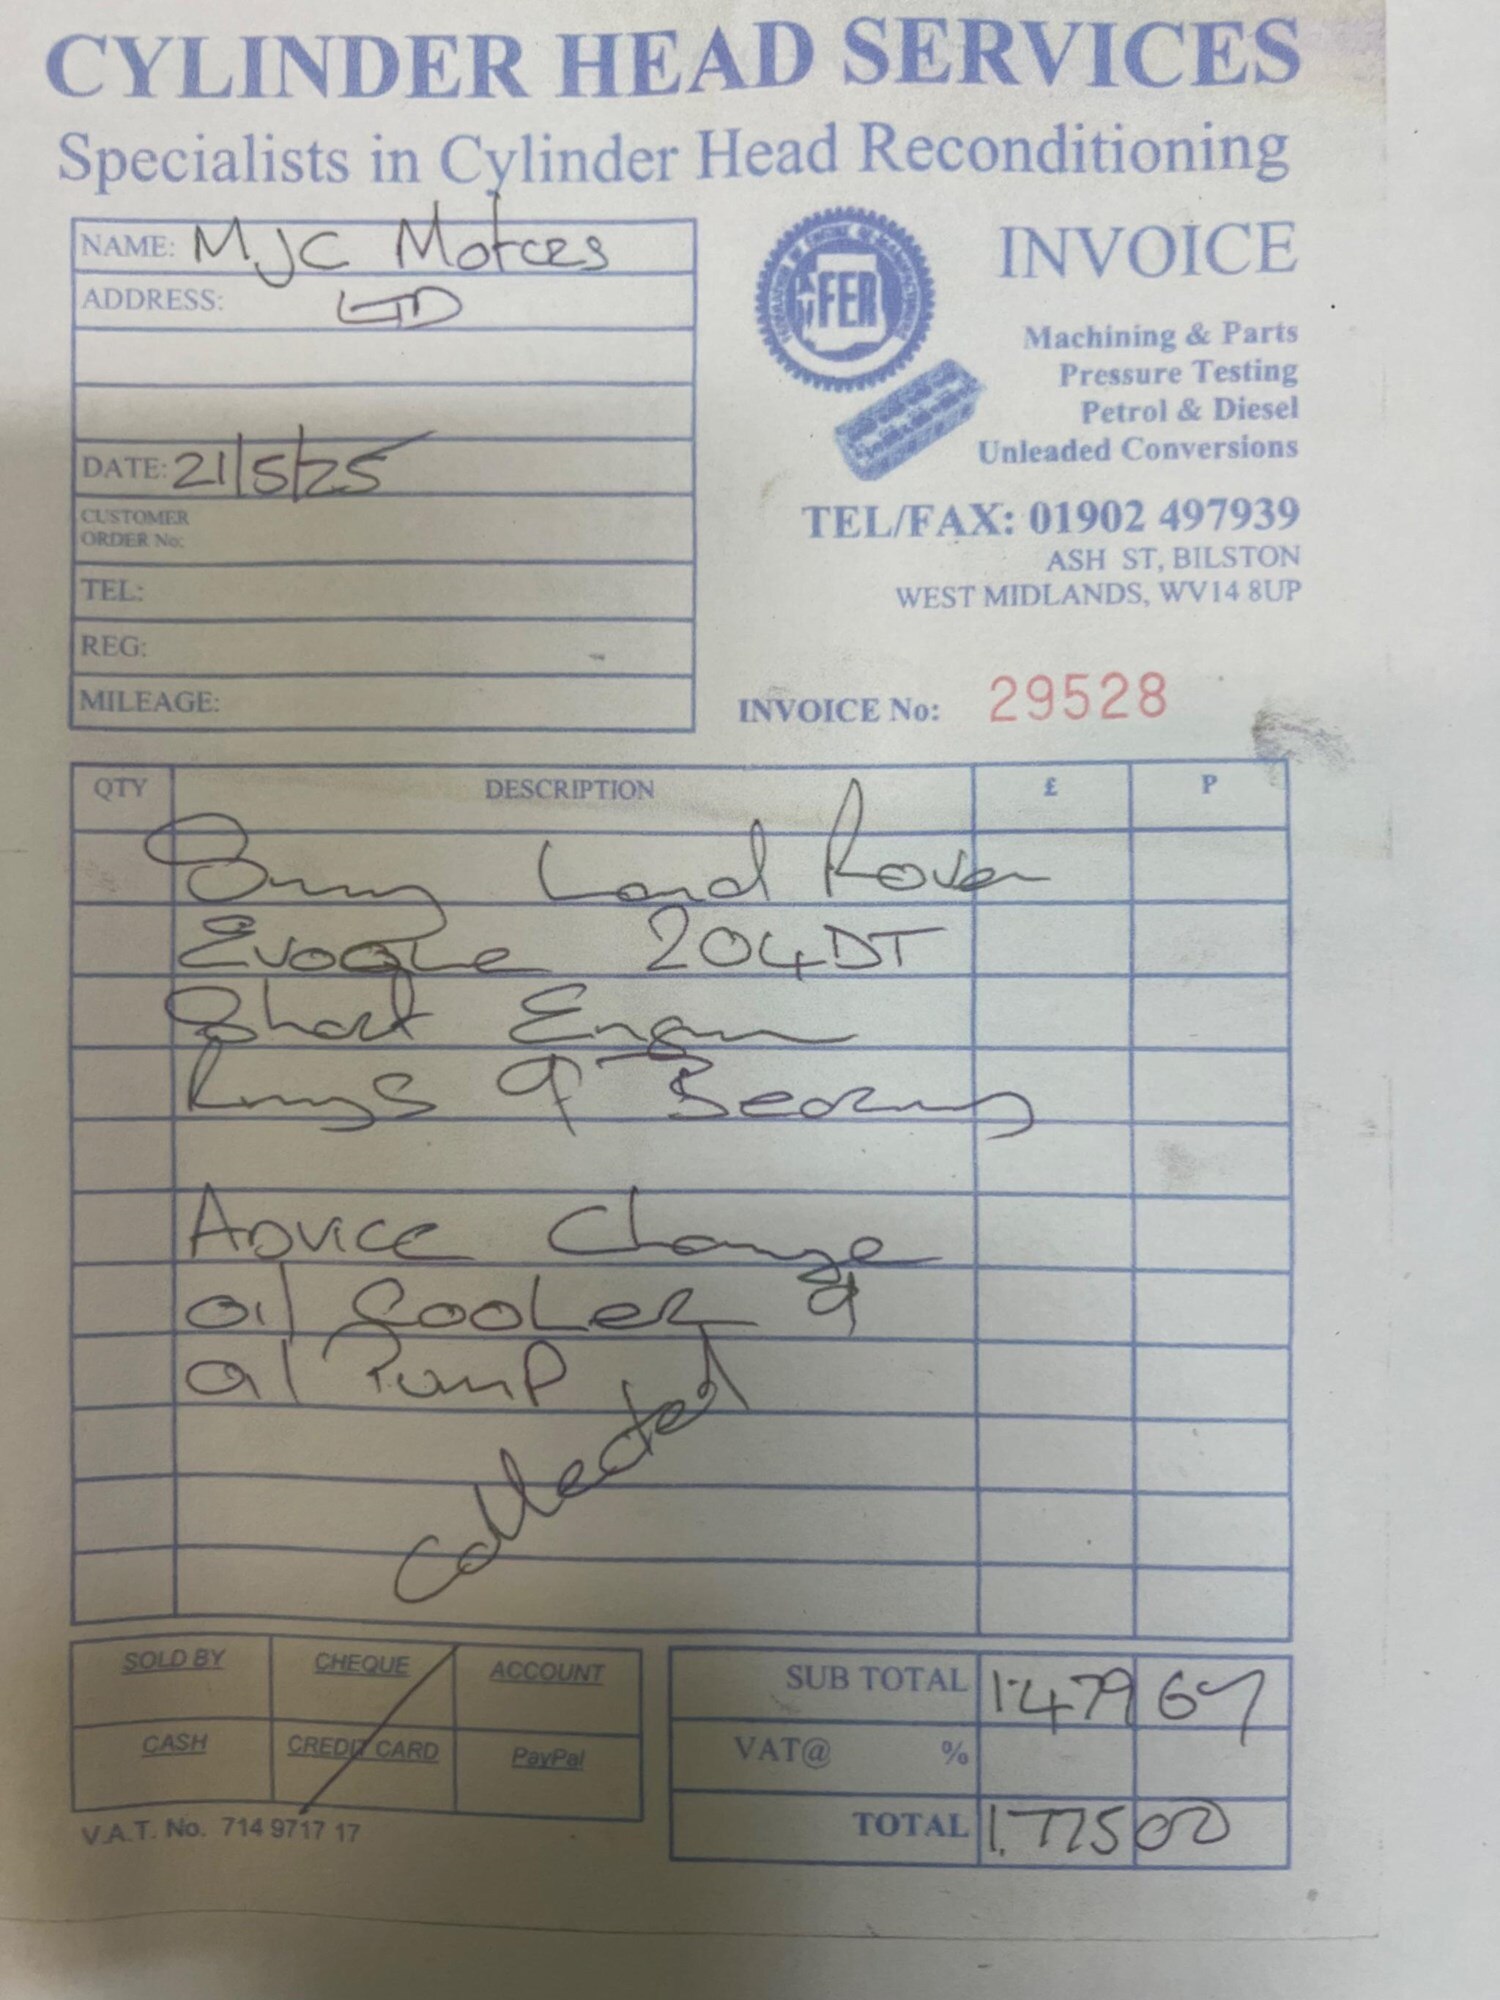 CYLINDER HEAD SERVICES
Specialists in Cylinder Head Reconditioning
NAME: MJC Motors
ADDRESS: LTD
DATE: 21/5/25
CUSTOMER
ORDER No:
TEL:
REG:
MILEAGE:
FER
INVOICE
Machining & Parts
Pressure Testing
Petrol & Diesel
Unleaded Conversions
TEL/FAX: 01902 497939
ASH ST, BILSTON
WEST MIDLANDS, WV14 8UP
INVOICE No: 29528
QTY DESCRIPTION £ P
Land Rover
Evoque 204DT
Short Engine
Rings & Bearings
Advice Change
oil Cooler &
oil Pump
Collected
SOLD BY CHEQUE ACCOUNT
CASH CREDIT CARD PayPal
V.A.T. No. 714 9717 17
SUB TOTAL 1.479 67
VAT@ %
TOTAL 1.775 00